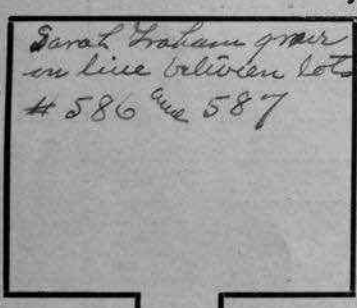 Sarah Graham grave
on line between lots
# 586 and 587